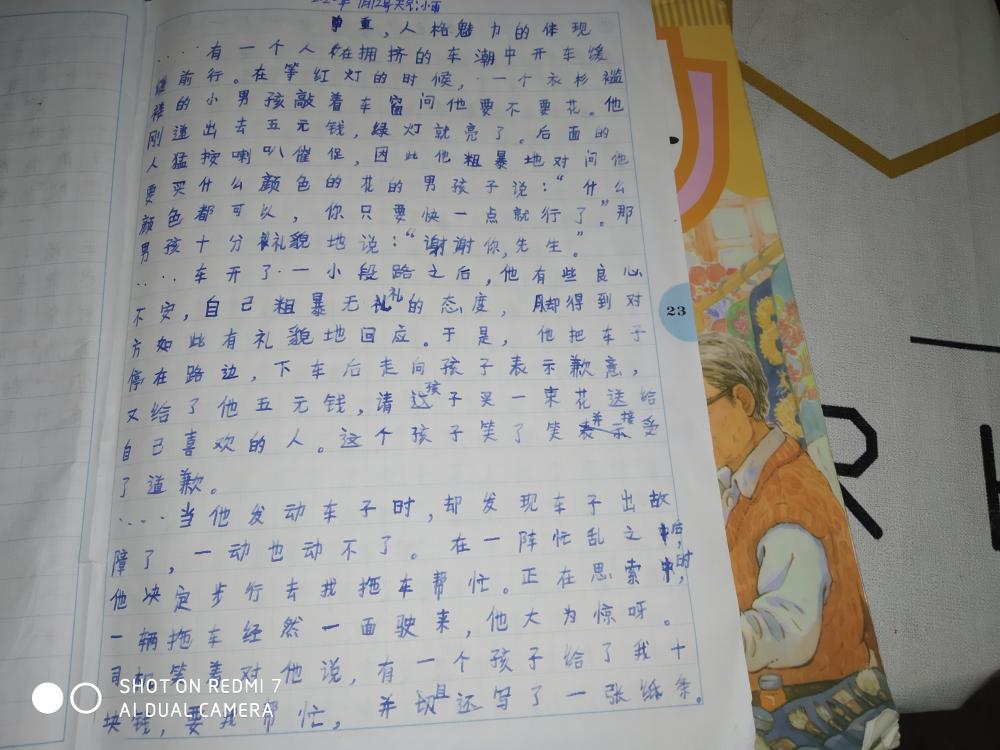 尊重，人格魅力的体现
有一个人在拥挤的车潮中开车缓
缓前行。在等红灯的时候，一个衣衫褴
褛的小男孩敲着车窗问他要不要花。他
刚递出去五元钱，绿灯就亮了。后面的
人猛按喇叭催促，因此他粗暴地对问他
要买什么颜色的花的男孩子说：“什么
颜色都可以，你只要快一点就行了。”那
男孩十分礼貌地说：“谢谢你，先生。”
车开了一小段路之后，他有些良心
不安，自己粗暴无礼的态度，却得到对
方如此有礼貌地回应。于是，他把车子
停在路边，下车后走向孩子表示歉意，
又给了他五元钱，请这孩子买一束花送给
自己喜欢的人。这个孩子笑了笑并接受
了道歉。
当他发动车子时，却发现车子出故
障了，一动也动不了。在一阵忙乱之后，
他决定步行去找拖车帮忙。正在思索时，
一辆拖车经然一面驶来，他大为惊呀。
司机笑着对他说，有一个孩子给了我十
块钱，要我帮忙，并且还写了一张纸条。
23
R
SHOT ON REDMI 7
AI DUAL CAMERA